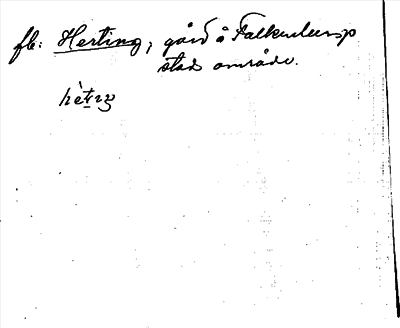 fb: Herting, gård å Falkenbergs
stads område.